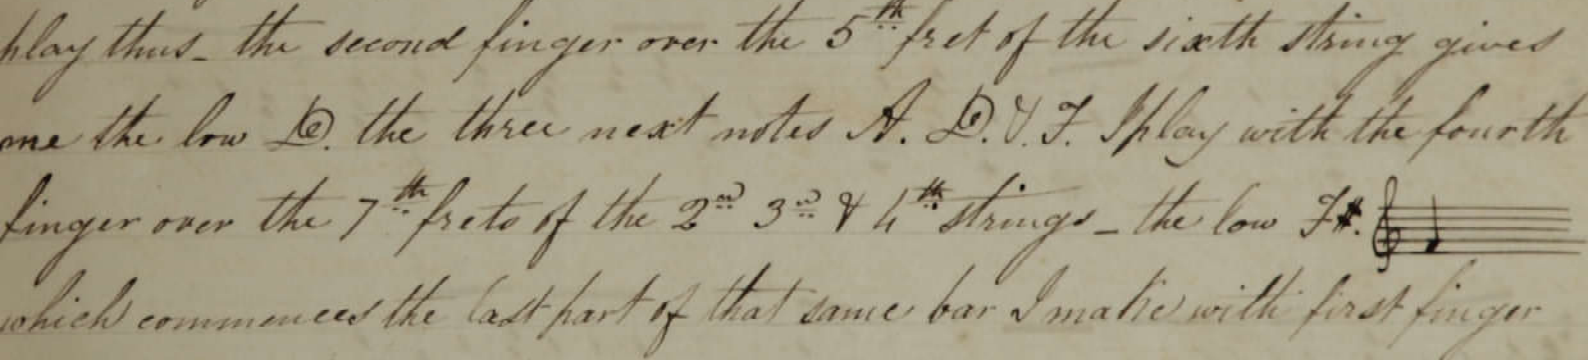 play thus_ the second finger over the 5th fret of the sixth string gives
me the low D. the three next notes A. D. & F. I play with the fourth
finger over the 7th frets of the 2nd 3rd & 4th strings_ the low F#.
which commences the last part of that same bar I make with first finger